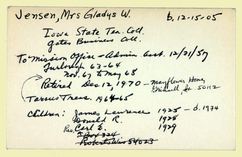 Jensen, Mrs Gladys W.    b. 12-15-05
Iowa State Tea. Coll.
Gates Business Coll.
To Mission Office - Admin. Asst. 12/31/57
Furlough 63-64
Nov. 67 to May 68
Retired Dec 12, 1970 - Mayflower Home, Grinnell Ia. 50112
Trans. 1964-65
Children: James Lawrence 1925 - d. 1934
Donald R. 1925
Rev Carl E. 1929
Box 224